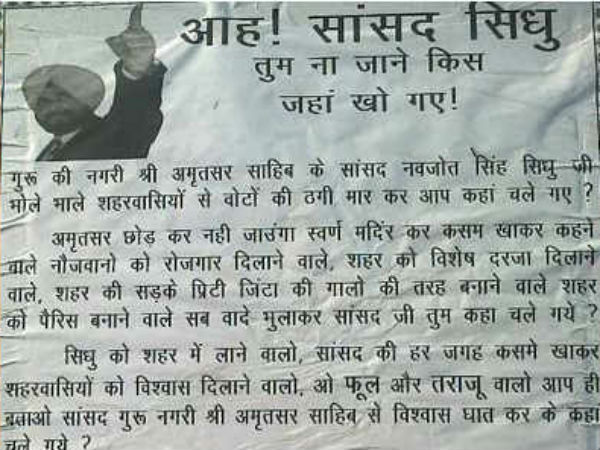 आह! सांसद सिधु
तुम ना जाने किस
जहां खो गए!
गुरू की नगरी श्री अमृतसर साहिब के सांसद नवजोत सिंह सिधु जी
भोले भाले शहरवासियों से वोटों की ठगी मार कर आप कहां चले गए ?
अमृतसर छोड़ कर नही जाउंगा स्वर्ण मदिंर कर कसम खाकर कहने
वाले नौजवानो को रोजगार दिलाने वाले, शहर को विशेष दरजा दिलाने
वाले, शहर की सड़के प्रिटी जिंटा की गालो की तरह बनाने वाले शहर
को पैरिस बनाने वाले सब वादे भुलाकर सांसद जी तुम कहा चले गये ?
सिधु को शहर में लाने वालो, सांसद की हर जगह कसमे खाकर
शहरवासियों को विश्वास दिलाने वालो, ओ फूल और तराजू वालो आप ही
बताओ सांसद गुरू नगरी श्री अमृतसर साहिब से विश्वास घात कर के कहा
चले गये ?